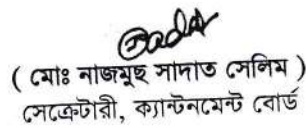 ( মোঃ নাজমুছ সাদাত সেলিম )
সেক্রেটারী, ক্যান্টনমেন্ট বোর্ড